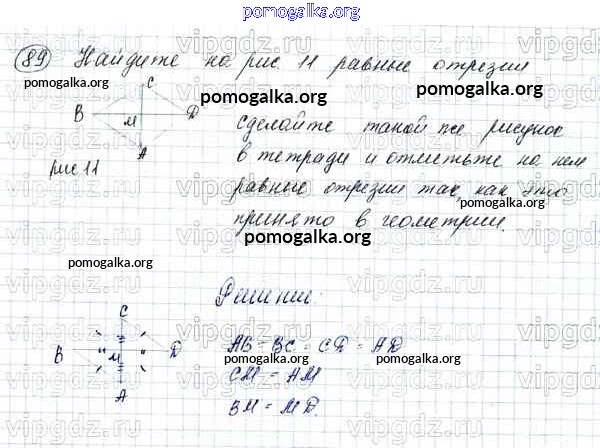 pomogalka.org
89 Найдите на рис 11 равные отрезки
pomogalka.org
C
B M D
A
Рис 11
pomogalka.org
сделайте такой же рисунок
в тетради и отметьте на нем
равные отрезки так, как это
принято в геометрии.
pomogalka.org
pomogalka.org
Решение:
C
B M D
A
AB = BC = CD = AD
CM = AM
BM = MD.
pomogalka.org
pomogalka.org
vipgdz.ru